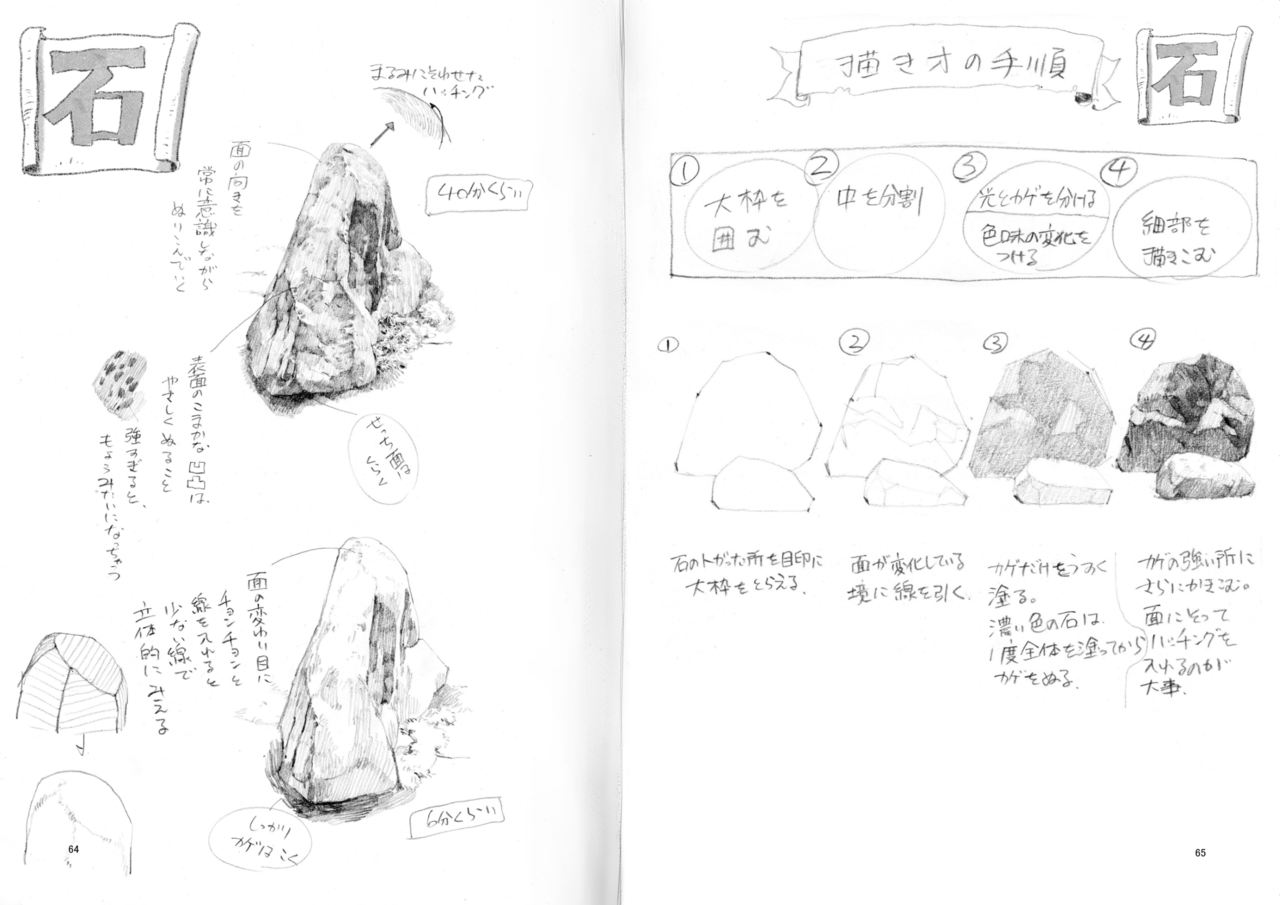 石
まるみにそわせた
ハッチング
40分くらい
面の向きを
常に意識しながら
ぬりこんでいく
表面のこまかな凹凸は
やさしくぬること
強すぎると、
もようみたいになっちゃう
せっち面は
くらく
面の変わり目に
チョンチョンと
線を入れると
少ない線で
立体的にみえる
しっかり
カゲはこく
6分くらい
64
描き方の手順
石
①
大枠を
囲む
②
中を分割
③
光とカゲを分ける
色味の変化を
つける
④
細部を
描きこむ
①
②
③
④
石のトガった所を目印に
大枠をとらえる.
面が変化している
境に線を引く.
カゲだけをうすく
塗る。
濃い色の石は.
1度全体を塗ってから
カゲをぬる.
カゲの強い所に
さらにかきこむ。
面にそって
ハッチングを
入れるのが
大事.
65